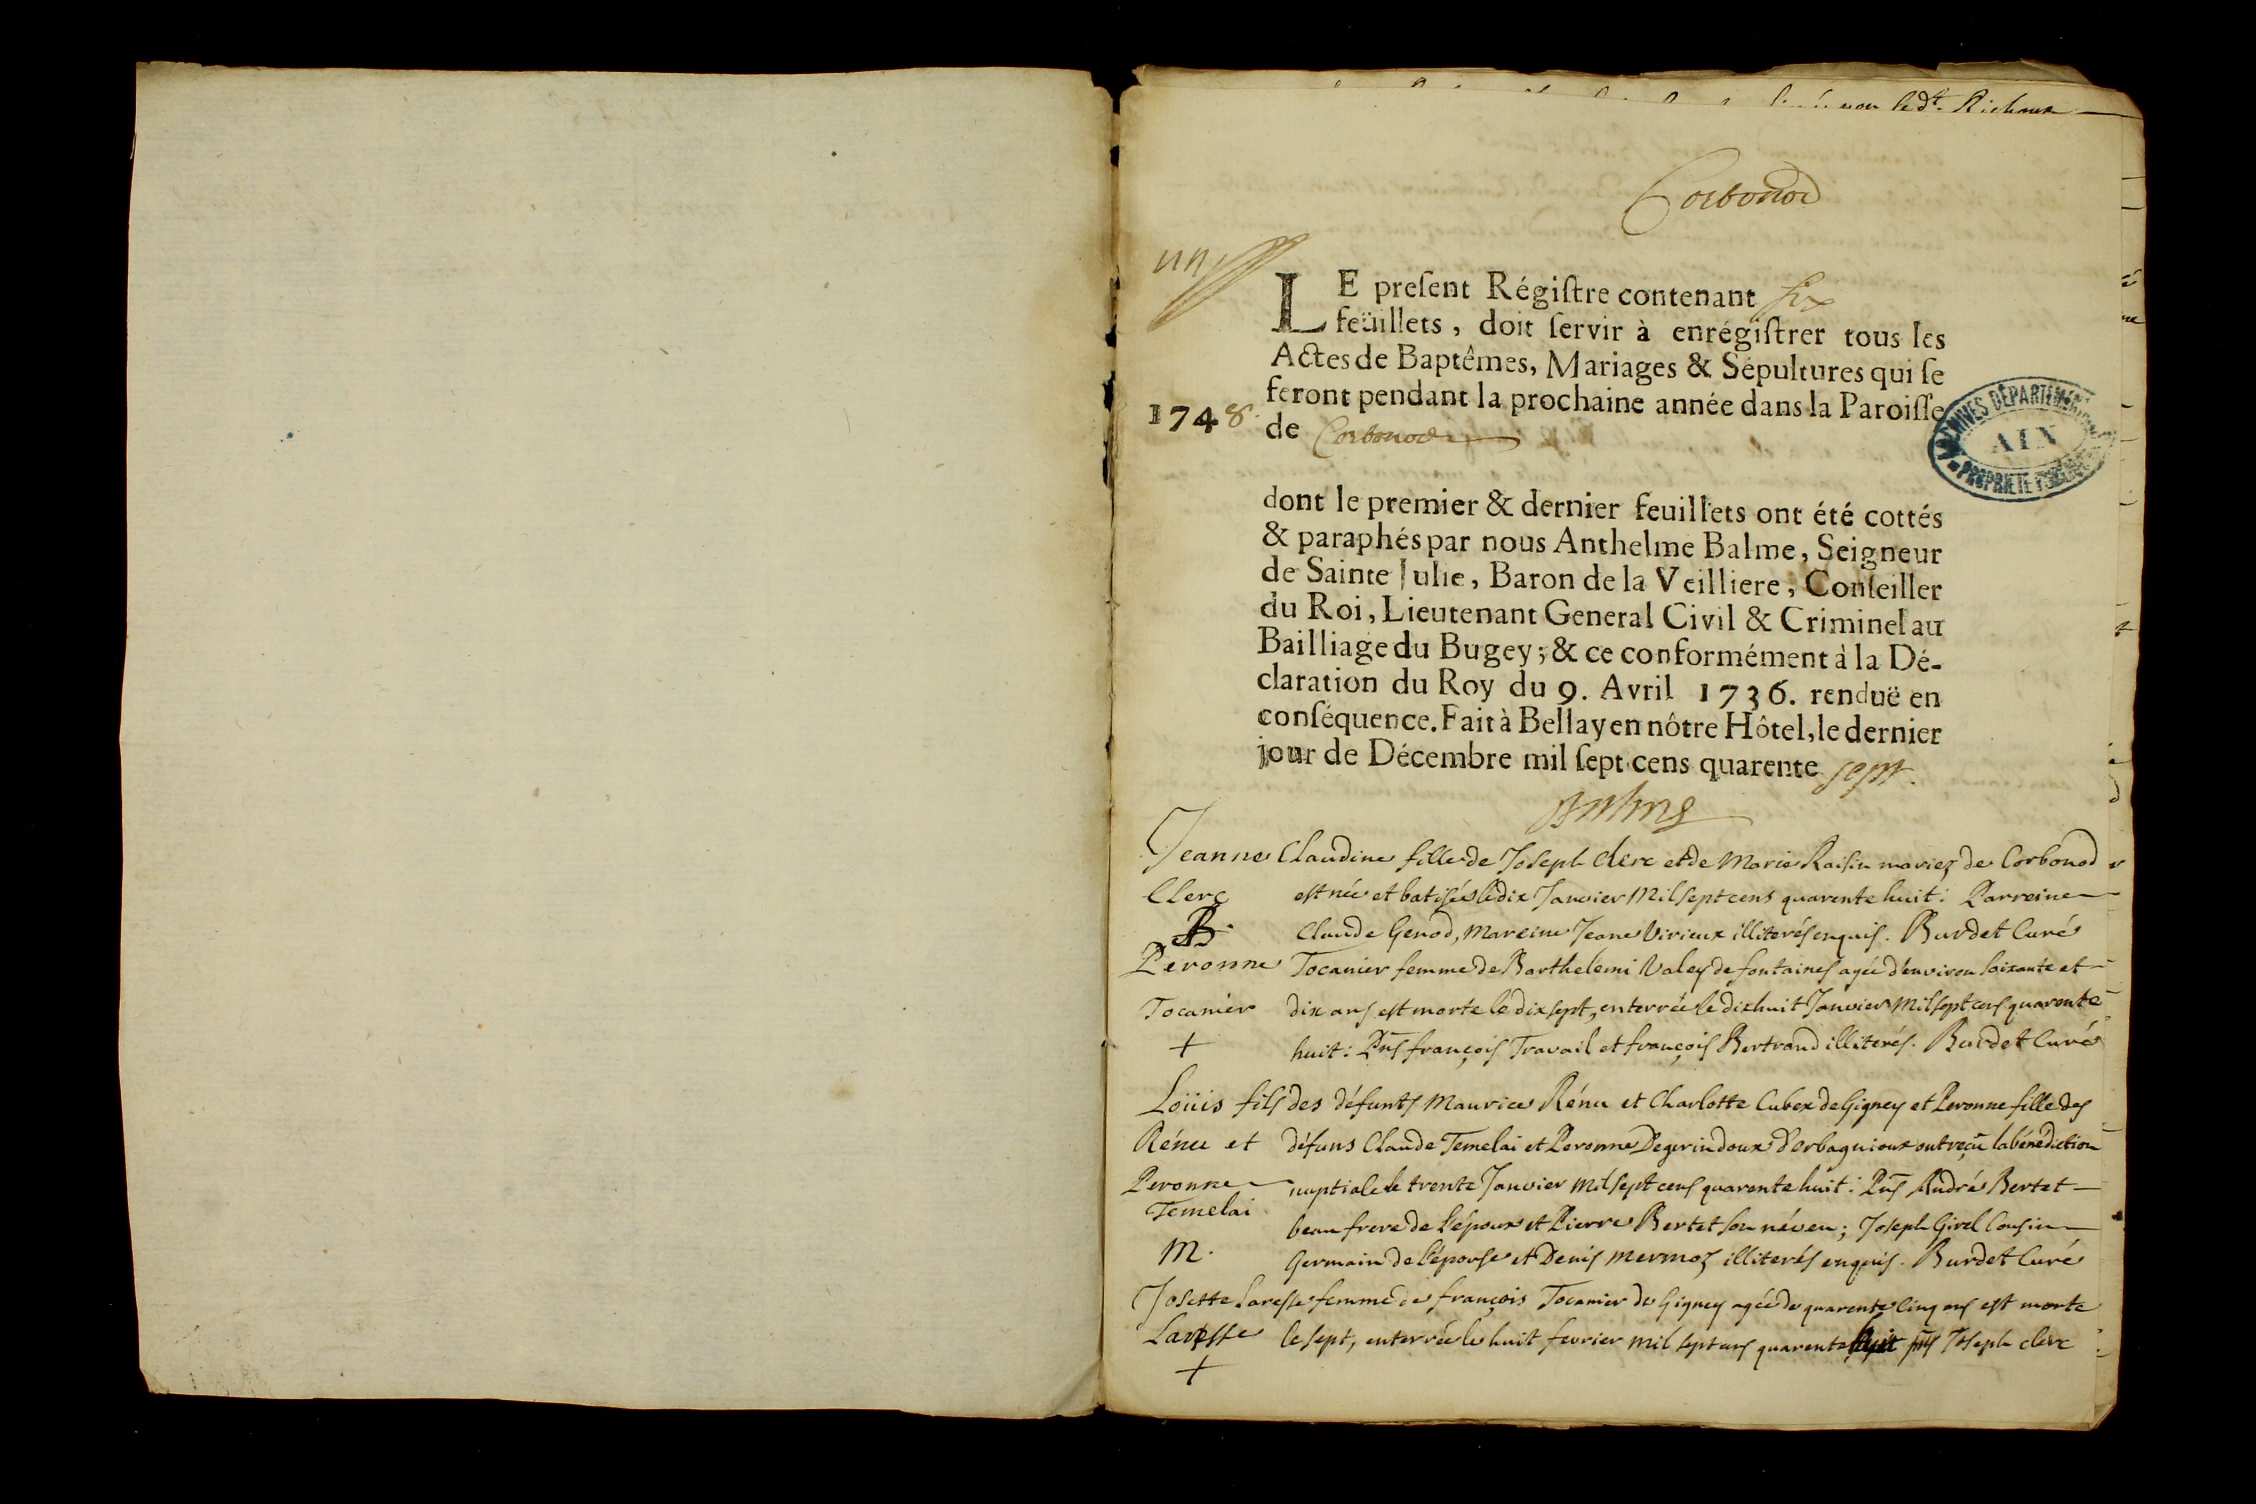 ledt. Richaux
Corbonod
un
LE preſent Régiſtre contenant six
feüillets, doit ſervir à enrégiſtrer tous les
Actes de Baptêmes, Mariages & Sépultures qui ſe
feront pendant la prochaine année dans la Paroiſſe
1748. de Corbonod
ARCHIVES DÉPARTEMENTALES
AIN
PROPRIETE PUBLIQUE
dont le premier & dernier feuillets ont été cottés
& paraphés par nous Anthelme Balme, Seigneur
de Sainte Julie, Baron de la Veilliere, Conſeiller
du Roi, Lieutenant General Civil & Criminel au
Bailliage du Bugey; & ce conformément à la Dé-
claration du Roy du 9. Avril 1736. renduë en
conſéquence. Fait à Bellay en nôtre Hôtel, le dernier
jour de Décembre mil ſept cens quarente sept.
Balme
Jeanne Claudine fille de Joseph Clerc et de Marie Raisin mariez de Corbonod
Clerc est née et batisée le dix Janvier Mil sept cens quarente huit: Parreine
B. Claude Genod, Mareine Jeane Virieux illiterés enquis. Burdet Curé
Peronne Tocanier femme de Barthelemi Valey de fontaines agée d'environ soixante et
Tocanier dix ans est morte le dix sept, enterrée le dixhuit Janvier Mil sept cens quarente
+ huit: Pns françois Travail et françois Bertrand illiterés. Burdet Curé
Loüis fils des défunts Maurice Rénu et Charlotte Cubex de Gigney et Peronne fille des
Rénu et défuns Claude Temelai et Peronne Degerindoux d'orbagnioux ont reçu la bénédiction
Peronne nuptiale le trente Janvier Mil sept cens quarente huit: Pns André Bertet
Temelai beau frere de l'époux et Pierre Bertet son néveu; Joseph Girel Cousin
M. Germain de l'épouse et Denis Mermoz illiterés enquis. Burdet Curé
Josette Laresse femme de françois Tocanier de Gigney agée de quarente cinq ans est morte
Laresse le sept, enterrée le huit fevrier Mil sept cens quarente huit pns Joseph clerc
+